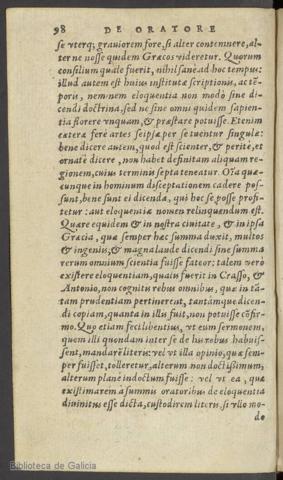 98 DE ORATORE
se vterq; grauiorem fore, si alter contemnere, al-
ter ne nosse quidem Græcos videretur. Quorum
consilium quale fuerit, nihil sanè ad hoc tempus:
illud autem est huius institutæ scriptionis, ac tē-
poris, neminem eloquentia non modò sine di-
cendi doctrina, sed ne sine omni quidem sapien-
tia florere vnquam, & præstare potuisse. Etenim
cæteræ ferè artes seipsæ per se tuentur singulæ:
bene dicere autem, quod est scienter, & perite, et
ornatè dicere, non habet definitam aliquam re-
gionem, cuius terminis septa teneatur. Oīa quæ-
cunque in hominum disceptationem cadere pos-
sunt, bene sunt ei dicenda, qui hoc se posse profi-
tetur: aut eloquentiæ nomen relinquendum est.
Quare equidem & in nostra ciuitate, & in ipsa
Græcia, quæ semper hæc summa duxit, multos
& ingenijs, & magna laude dicendi sine summa
rerum omnium scientia fuisse fateor: talem verò
existere eloquentiam, qualis fuerit in Crasso, &
Antonio, non cognitis rebus omnibus, quæ in tā-
tam prudentiam pertinerent, tantámque dicen-
di copiam, quanta in illis fuit, non potuisse cōfir-
mo. Quo etiam feci libentius, vt eum sermonem,
quem illi quondam inter se de his rebus habuis-
sent, mandarē literis: vel vt illa opinio, quæ sem-
per fuisset, tolleretur, alterum non doctißimum,
alterum planè indoctum fuisse: vel vt ea, quæ
existimarem à summis oratoribus de eloquentia
diuinitus esse dicta, custodirem literis, si vllo mo-
do
Biblioteca de Galicia